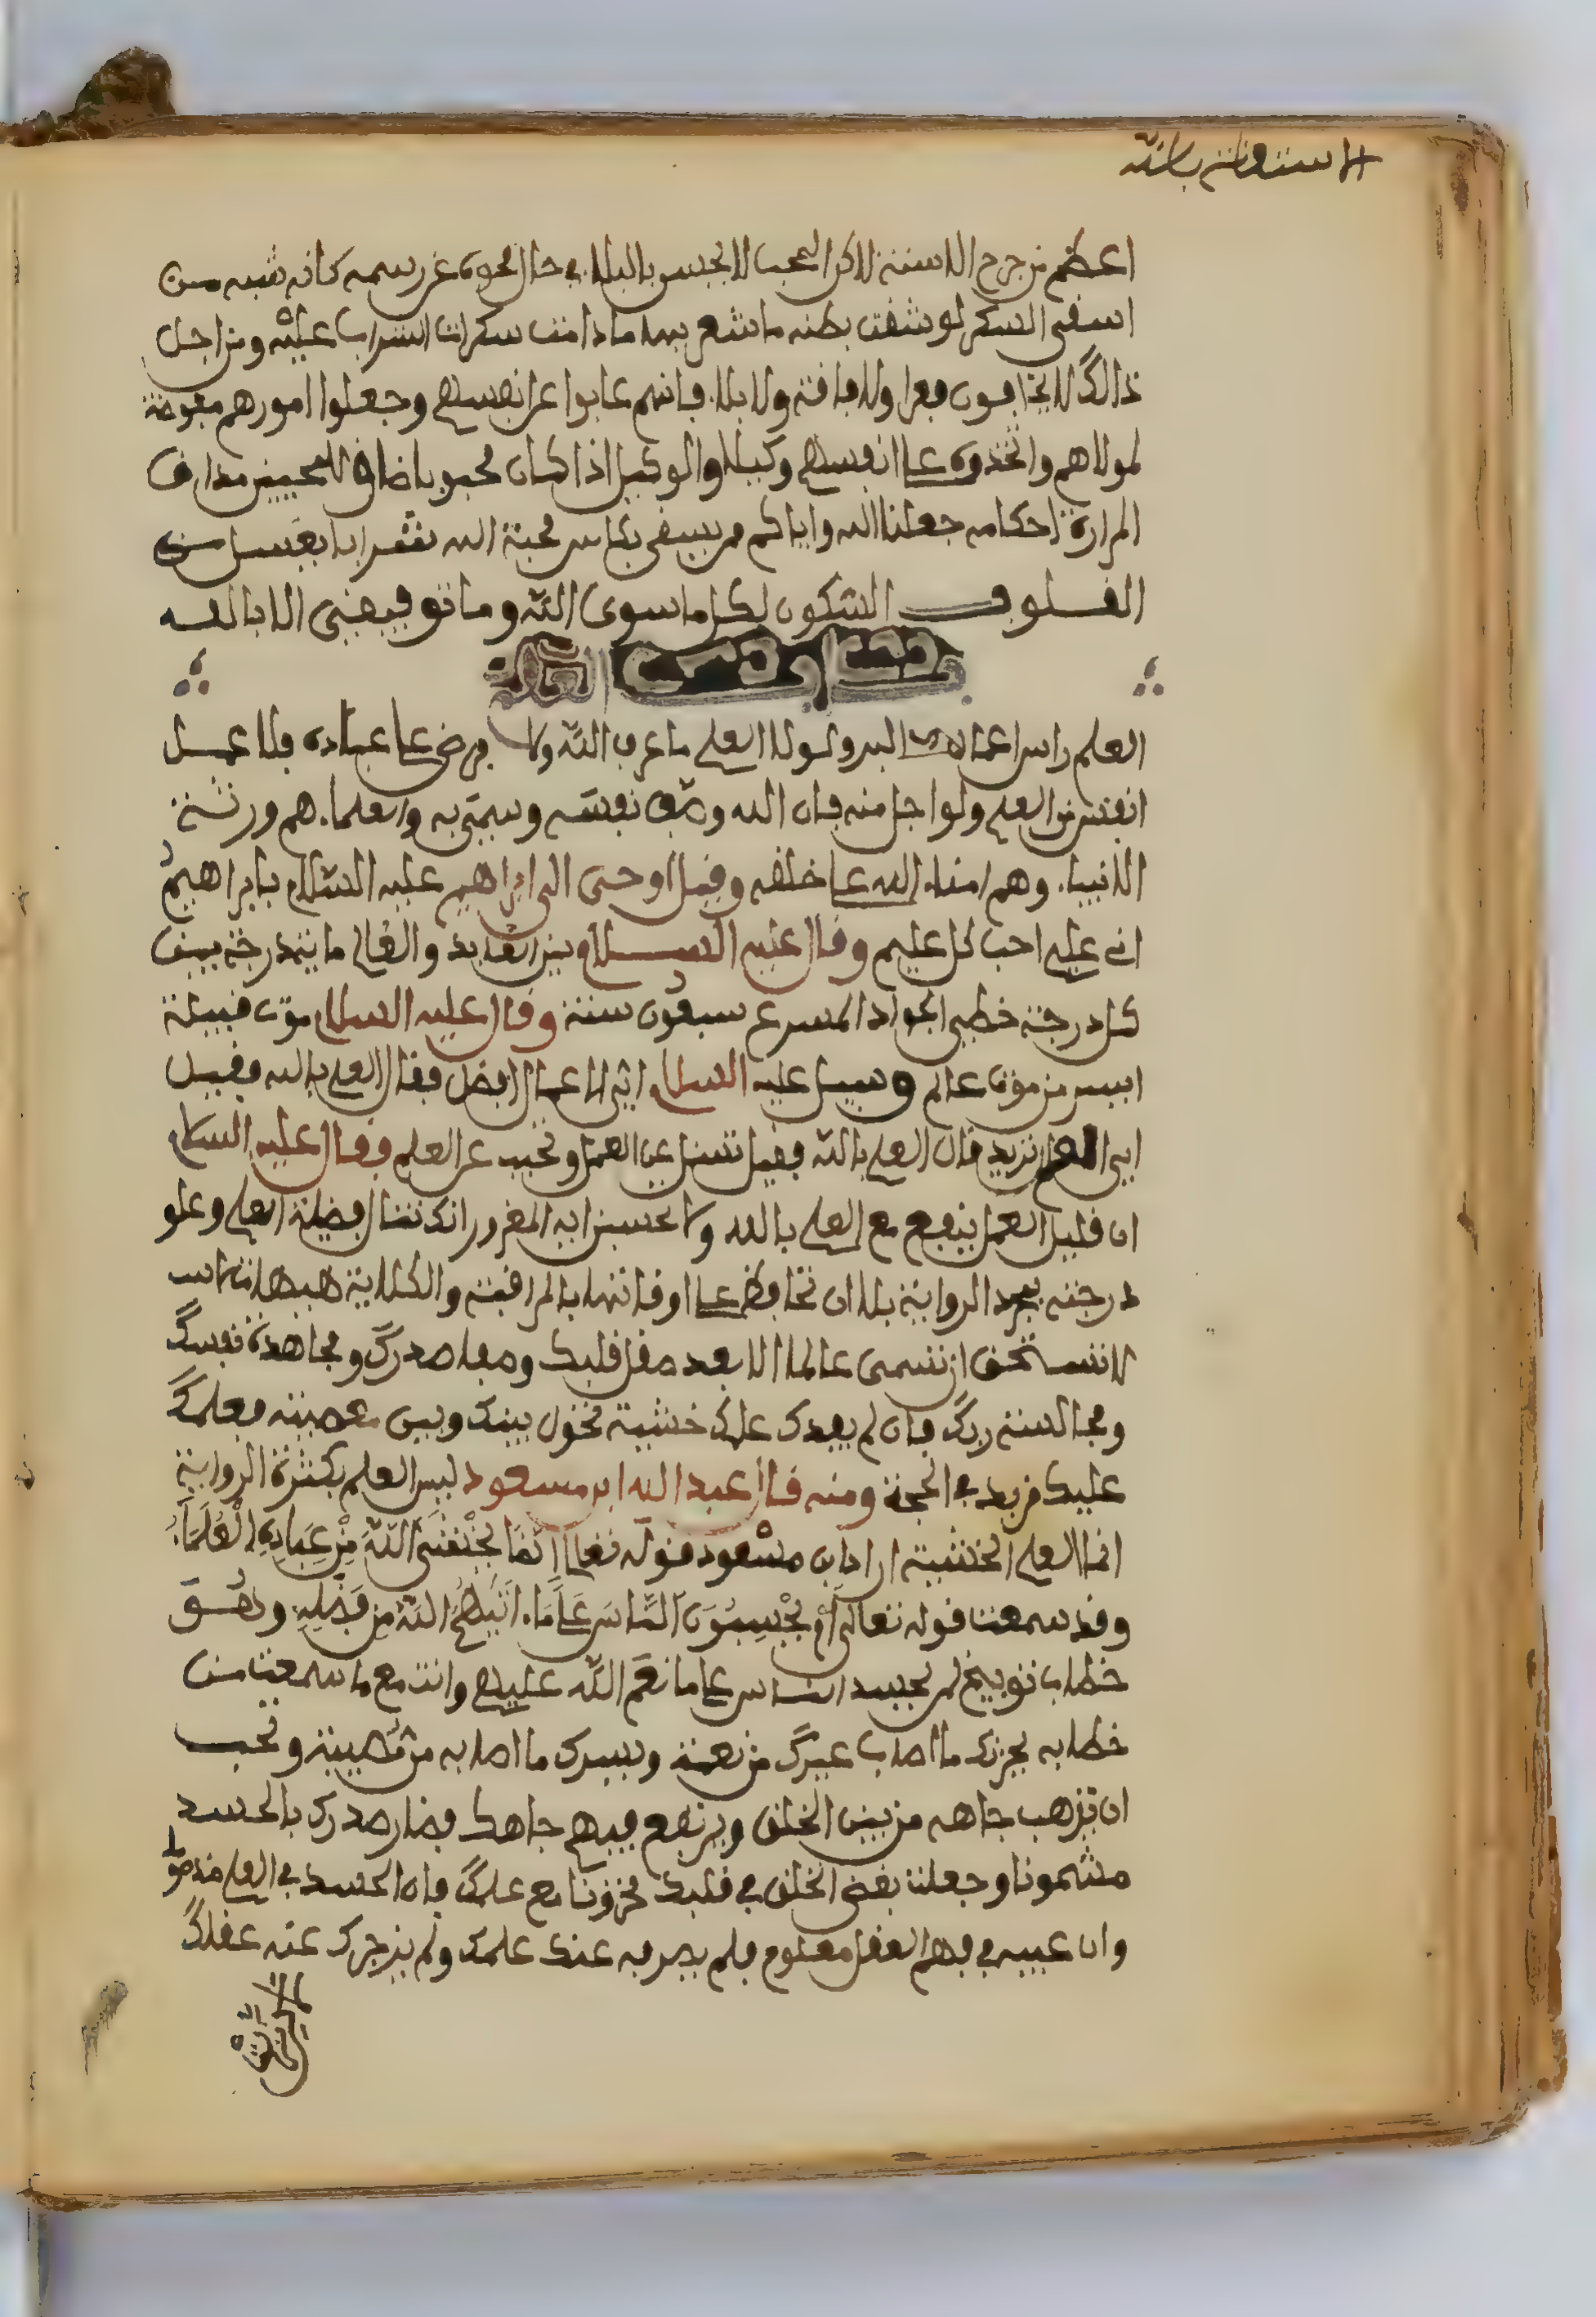 الاستعانة بالله
اعظم من جرح الاسنة لاكن المحب لا يحس بالبلاء في حال محوه عن رسمه كانه شبه من
اسفى السكر لو شفت بطنه ما شعر بها ما دامت سكرات الشراب عليه ومن اجل
ذالك لا يخافون فقرا ولا فاقة ولا بلاء فانهم غابوا عن انفسهم وجعلوا امورهم مفوضة
لمولاهم واتخذوه على انفسهم وكيلا والوكيل اذا كان محبوبا ضاق للمحبين مذاق
المرارة احكامه جعلنا الله واياكم ممن يسقى بكاس محبة الله شرابا يغسل من
القلوب السكون لكل ما سوى الله وما توفيقي الا بالله
العلم راس اعمال البر ولولا العلم ما عرف الله ولا فرض على عباده فلا عمل
انفس من العلم ولا اجل منه فان الله وصف نفسه وسمى به والعلماء هم ورثة
الانبياء وهم امناء الله على خلقه وقيل اوحى الى ابراهيم عليه السلام يا ابراهيم
اني عليم احب كل عليم وقال عليه السلام بين العابد والعالم ماية درجة بين
كل درجة خطى الجواد المسرع سبعون سنة وقال عليه السلام موت قبيلة
ايسر من موت عالم وسيل عليه السلام اي الاعمال افضل فقال العلم بالله فقيل
اي العمل تريد قال العلم بالله فقيل تسئل عن العمل وتجيب عن العلم فقال عليه السلام
ان قليل العمل ينفع مع العلم بالله ولا تحسبن ايه المغرور انك تنال فضيلة العلم وعلو
درجته بمجرد الرواية بلا ان تحافظ على اوقاتها بالمراقبة والكلاية هيهات
لا تستحق ان تسمى عالما الا بعد صقل قلبك وصفا صدرك ومجاهدة نفسك
ومجالسة ربك فان لم يفدك علمك خشية تحول بينك وبين معصيته فعلمك
عليك مزيد في الحجة ومنه قال عبد الله ابن مسعود ليس العلم بكثرة الرواية
انما العلم الخشية اراد ابن مسعود قوله تعالى انما يخشى الله من عباده العلماء
وقد سمعت قوله تعالى ام يحسدون الناس على ما اتيهم الله من فضله وهو
خطاب توبيخ لمن يحسد الناس على ما نعم الله عليهم وانت مع ما سمعت من
خطابه يحزنك ما اصاب غيرك من نعمة ويسرك ما اصابه من مصيبة وتحب
ان يذهب جاهه من بين الخلق ويرتفع فيهم جاهك فصار صدرك بالحسد
مشحونا وجعلت بغض الخلق في قلبك مخزونا مع علمك فان الحسد في العلم مذموم
وان عيبه في فهم العقل معلوم فلم يصرفه عنك علمك ولم يزجرك عنه عقلك